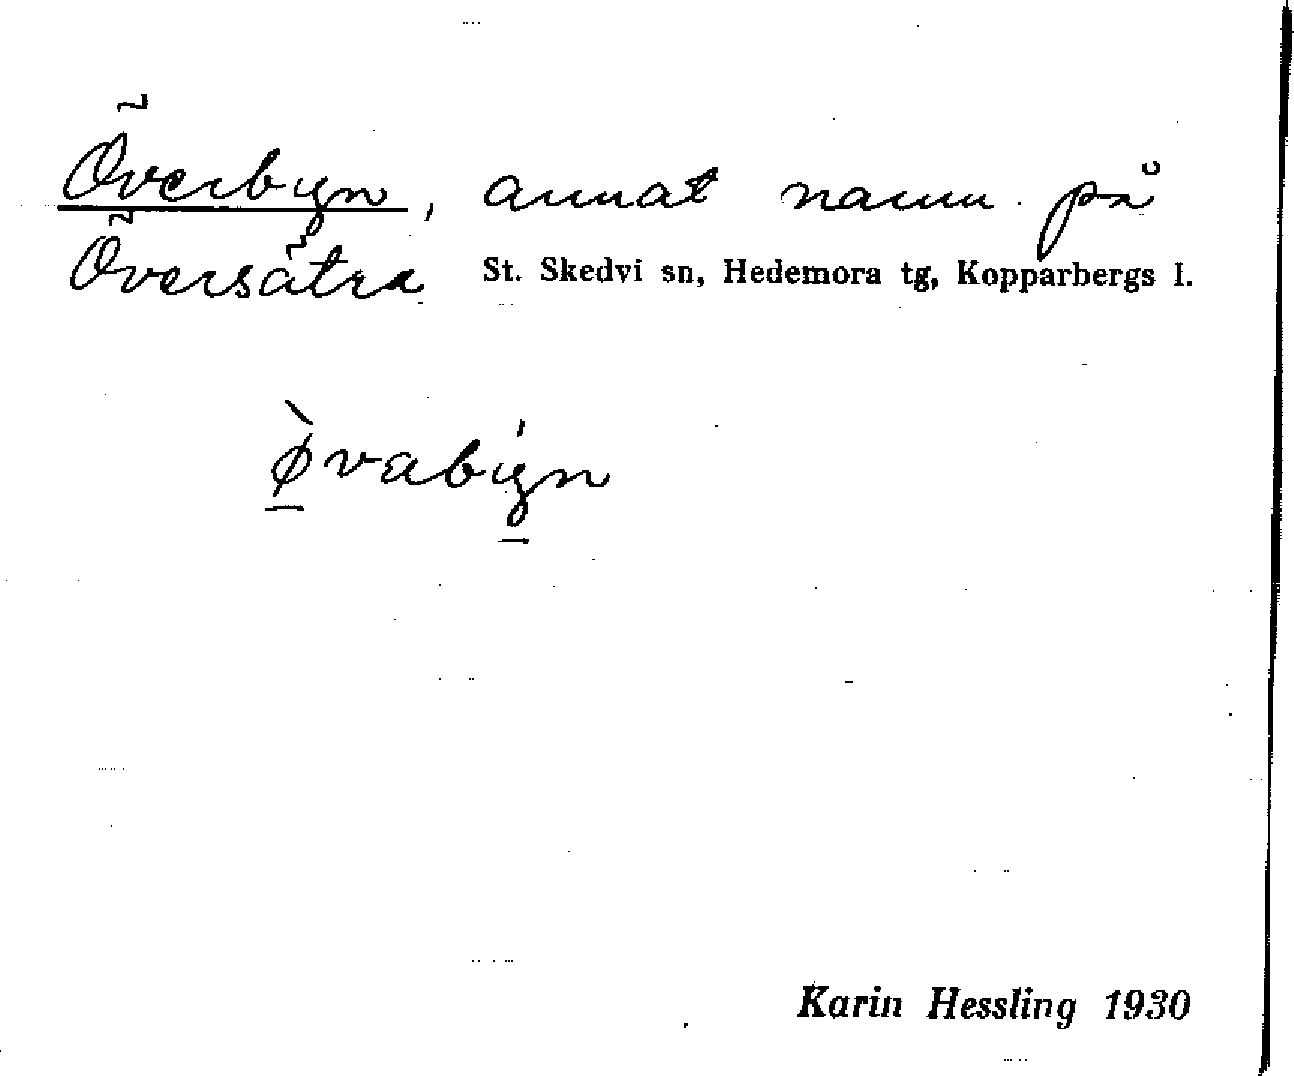 Överbyn, annat namn på
Översätra St. Skedvi sn, Hedemora tg, Kopparbergs l.
ø̀vabýn
Karin Hessling 1930